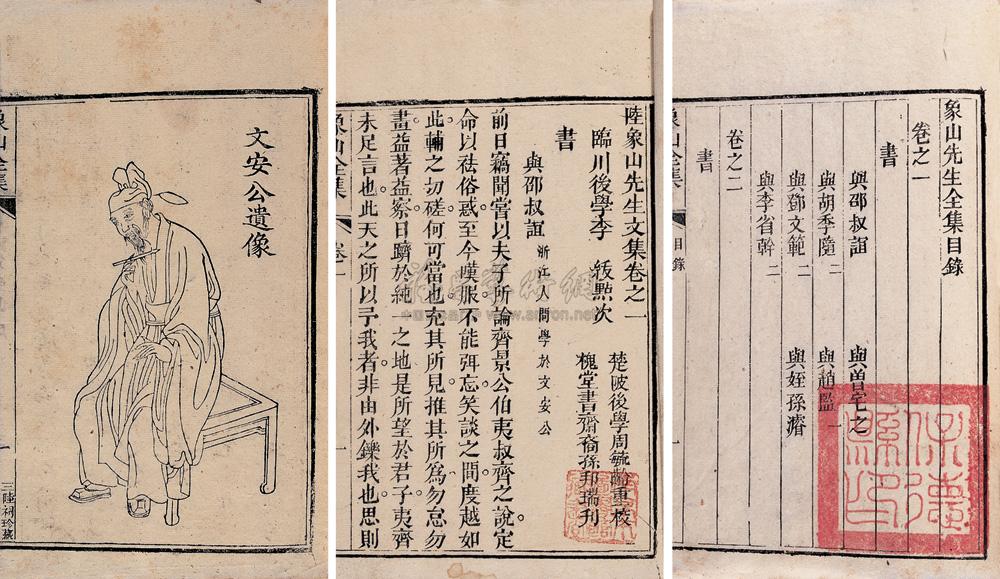 文安公遺像
象山全集
三陸祠珍藏
陸象山先生文集卷之一
臨川後學李 紱點次
後學周毓齡重校
槐堂書齋裔孫邦瑞刊
書
與邵叔誼 浙江人問學於文安公
前日竊聞嘗以夫子所論齊景公伯夷叔齊之說定
命以祛俗惑至今嘆服不能弭忘笑談之間度越如
此輔之切磋何可當也充其所見推其所為勿怠勿
畫益著益察日躋於純一之地是所望於君子夷齊
未足言也此天之所以予我者非由外鑠我也思則
象山全集 卷一 一
象山先生全集目錄
卷之一
書
與邵叔誼 與曾宅之
與胡季隨二 與趙監
與鄧文範二 與姪孫濬
與李省幹二
卷之二
書
象山全集 目錄 一
保德縣印
www.artron.net